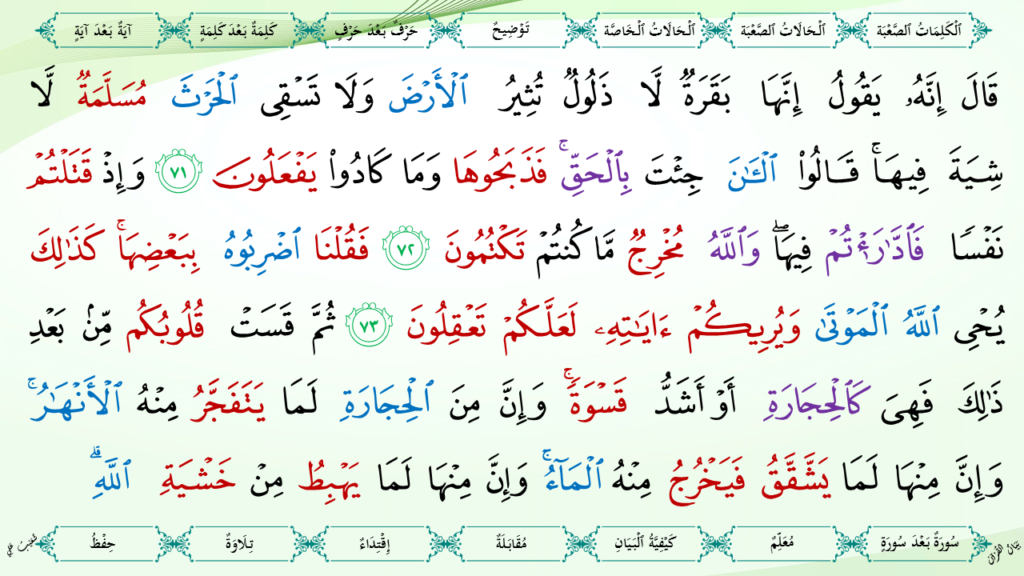 اَلْكَلِمَاتُ الصَّعْبَة اَلْحَالَاتُ الصَّعْبَة اَلْحَالَاتُ الْخَاصَّة تَوْضِيحٌ حَرْفٌ بَعْدَ حَرْفٍ كَلِمَةٌ بَعْدَ كَلِمَةٍ آيَةٌ بَعْدَ آيَةٍ
قَالَ إِنَّهُۥ يَقُولُ إِنَّهَا بَقَرَةٌ لَّا ذَلُولٌ تُثِيرُ ٱلْأَرْضَ وَلَا تَسْقِى ٱلْحَرْثَ مُسَلَّمَةٌ لَّا
شِيَةَ فِيهَاۚ قَالُواْ ٱلْـَٰٔنَ جِئْتَ بِٱلْحَقِّۚ فَذَبَحُوهَا وَمَا كَادُواْ يَفْعَلُونَ ٧١ وَإِذْ قَتَلْتُمْ
نَفْسًا فَٱدَّٰرَْٰٔتُمْ فِيهَاۖ وَٱللَّهُ مُخْرِجٌ مَّا كُنتُمْ تَكْتُمُونَ ٧٢ فَقُلْنَا ٱضْرِبُوهُ بِبَعْضِهَاۚ كَذَٰلِكَ
يُحْىِ ٱللَّهُ ٱلْمَوْتَىٰ وَيُرِيكُمْ ءَايَٰتِهِۦ لَعَلَّكُمْ تَعْقِلُونَ ٧٣ ثُمَّ قَسَتْ قُلُوبُكُم مِّنۢ بَعْدِ
ذَٰلِكَ فَهِىَ كَٱلْحِجَارَةِ أَوْ أَشَدُّ قَسْوَةًۚ وَإِنَّ مِنَ ٱلْحِجَارَةِ لَمَا يَتَفَجَّرُ مِنْهُ ٱلْأَنْهَٰرُۚ
وَإِنَّ مِنْهَا لَمَا يَشَّقَّقُ فَيَخْرُجُ مِنْهُ ٱلْمَآءُۚ وَإِنَّ مِنْهَا لَمَا يَهْبِطُ مِنْ خَشْيَةِ ٱللَّهِۗ
بَيَانُ الْقُرْآن سُورَةٌ بَعْدَ سُورَةٍ مُعَلِّمٌ كَيْفِيَّةُ الْبَيَانِ مُقَابَلَةٌ إِقْتِدَاءٌ تِلَاوَةٌ حِفْظٌ